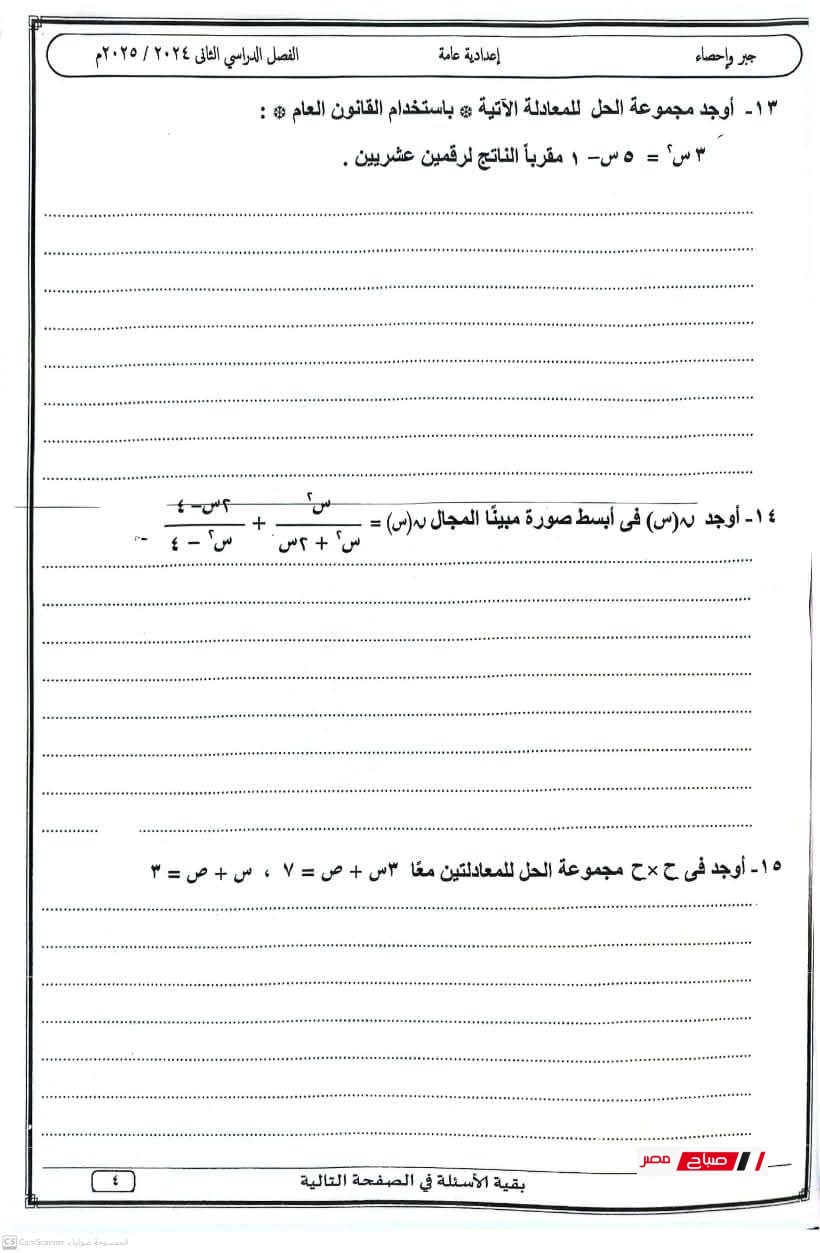 جبر وإحصاء إعدادية عامة الفصل الدراسي الثانى ٢٠٢٤ / ٢٠٢٥م
١٣- أوجد مجموعة الحل للمعادلة الآتية * باستخدام القانون العام * :
٣ س٢ = ٥ س – ١ مقرباً الناتج لرقمين عشريين .
١٤- أوجد ن(س) فى أبسط صورة مبينًا المجال ن(س) = س٢ / س٢ + ٢س + ٢س – ٤ / س٢ – ٤
١٥- أوجد فى ح × ح مجموعة الحل للمعادلتين معًا ٣س + ص = ٧ ، س + ص = ٣
صباح مصر
بقية الأسئلة في الصفحة التالية
٤
CS CamScanner الممسوحة ضوئيا بـ